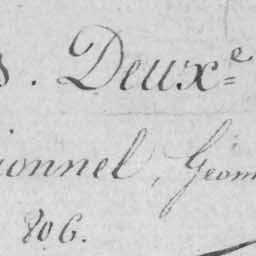 . Deuxe
ionnel, Géom
206.